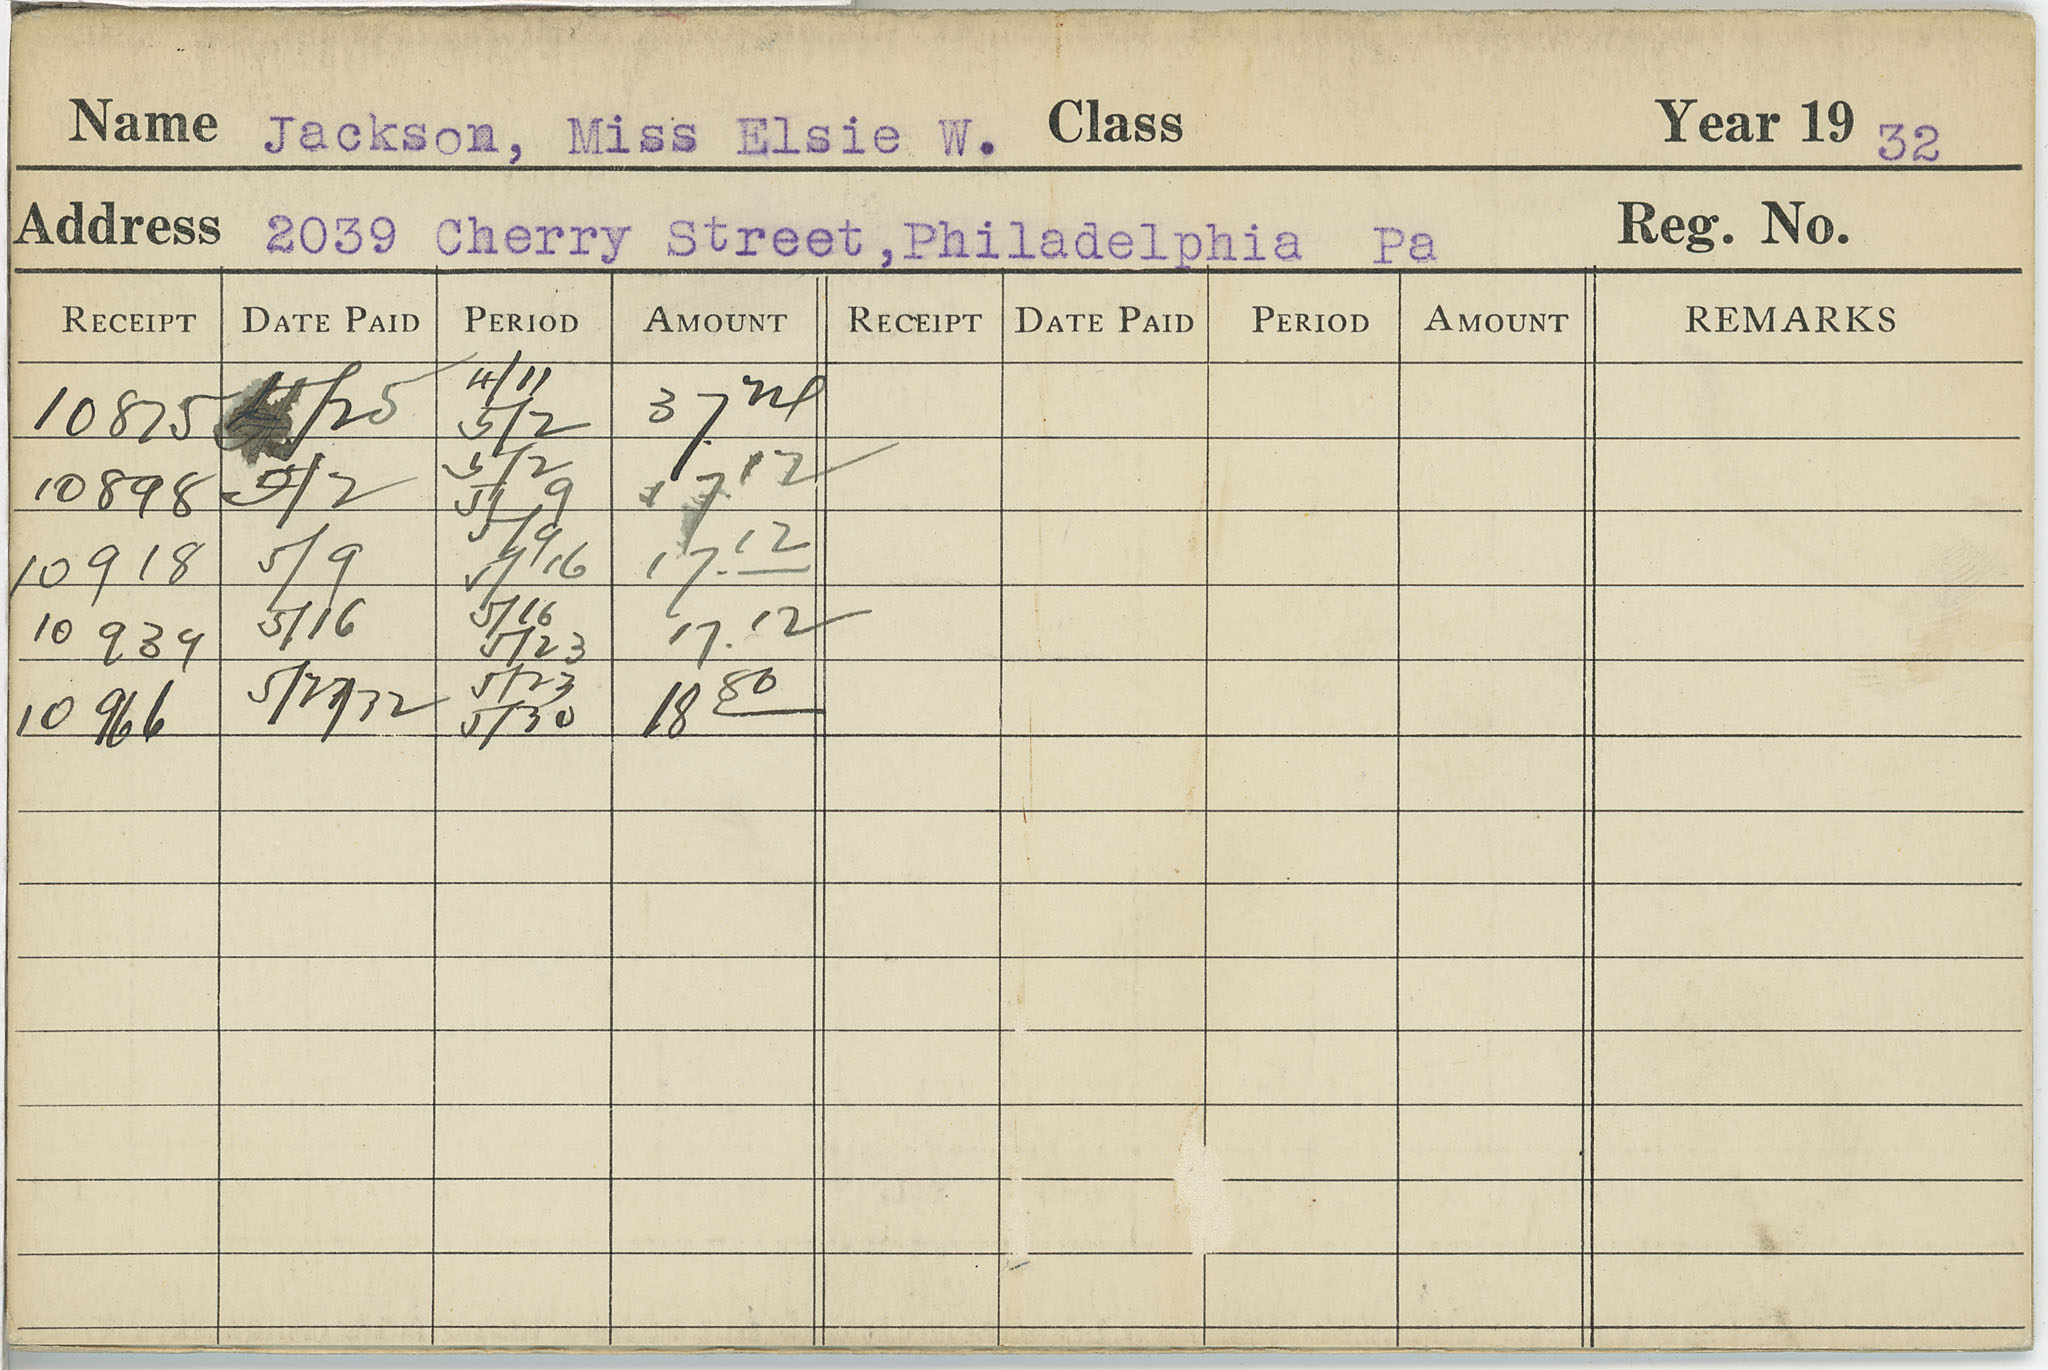 Name Jackson, Miss Elsie W. Class Year 19 32
Address 2039 Cherry Street, Philadelphia Pa Reg. No.
RECEIPT DATE PAID PERIOD AMOUNT RECEIPT DATE PAID PERIOD AMOUNT REMARKS
4/11
10875 4/25 5/2 37.
5/2
10898 5/2 5/9 17.12
5/9
10918 5/9 5/16 17.12
5/16
10934 5/16 5/23 17.12
5/23
10966 5/27/32 5/30 18 80